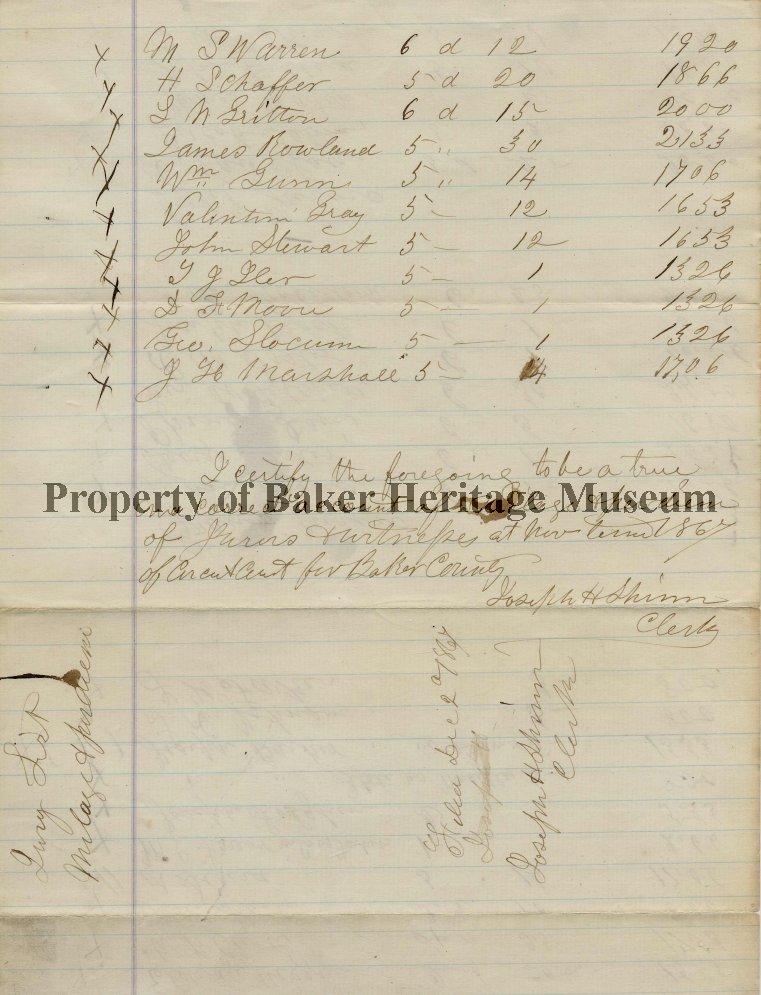 x M S Warren 6 d 12 1920
x H Schaffer 5 d 20 1866
x L N Gritton 6 d 15 2000
x James Rowland 5 " 30 2133
x Wm Gunn 5 " 14 1706
x Valentine Gray 5 – 12 1653
x John Stewart 5 – 12 1653
x T J Iler 5 – 1 1326
x D F Moore 5 – 1 1326
x Geo. Slocum 5 – 1 1326
x J H Marshall 5 – 14 17,06
I certify the foregoing to be a true
and correct account of the
of Jurors & witnesses at Nov term 1867
of Circuit Court for Baker County
Joseph H Shinn
Clerk
Property of Baker Heritage Museum
Jury List
Milage & perdiem
Filed Dec 2d 1867
Joseph H
Joseph H Shinn
Clerk